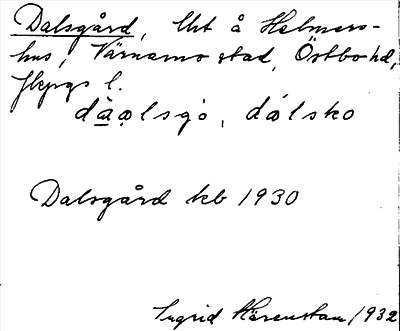 Dalsgård, lht å Helmers-
hus, Värnamo stad, Östbo hd,
Jkpgs l.
dàalsgo, dálsko
Dalsgård kb 1930
Ingrid Härenstam 1932